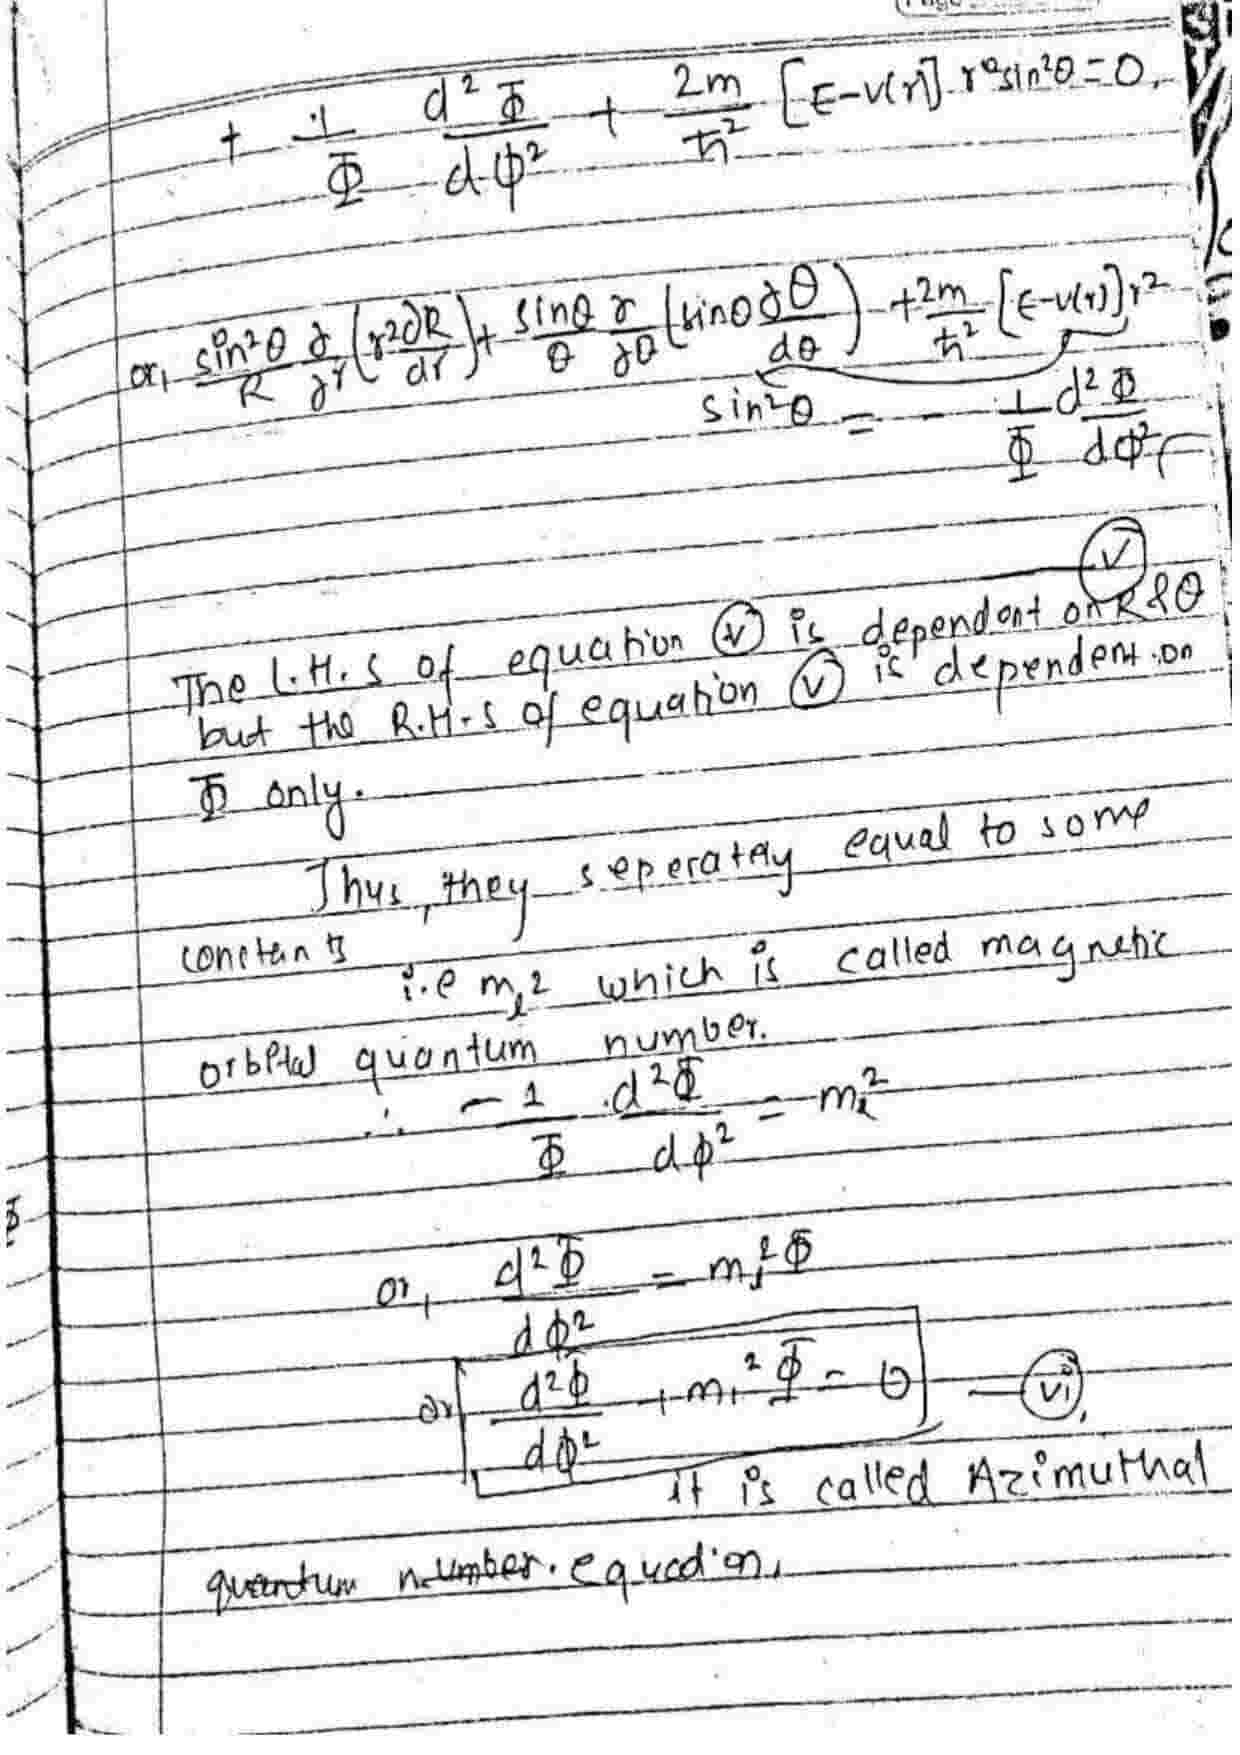 + 1/Φ d²Φ/dφ² + 2m/ħ² [E-V(r)] r² sin²θ = 0.
or, sin²θ/R ∂/∂r (r² ∂R/dr) + sinθ/θ ∂/∂θ (sinθ ∂θ/dθ) + 2m/ħ² [E-V(r)] r²
sin²θ = - 1/Φ d²Φ/dφ²
(v)
The L.H.S of equation (v) is dependent on R & θ
but the R.H.S of equation (v) is dependent on
Φ only.
Thus, they seperately equal to some
constants
i.e mₗ² which is called magnetic
orbital quantum number.
∴ - 1/Φ . d²Φ/dφ² = mₗ²
or, d²Φ/dφ² = mₗ² Φ
or, d²Φ/dφ² + mₗ² Φ = 0 — (vi)
it is called Azimuthal
quantum number. equation.